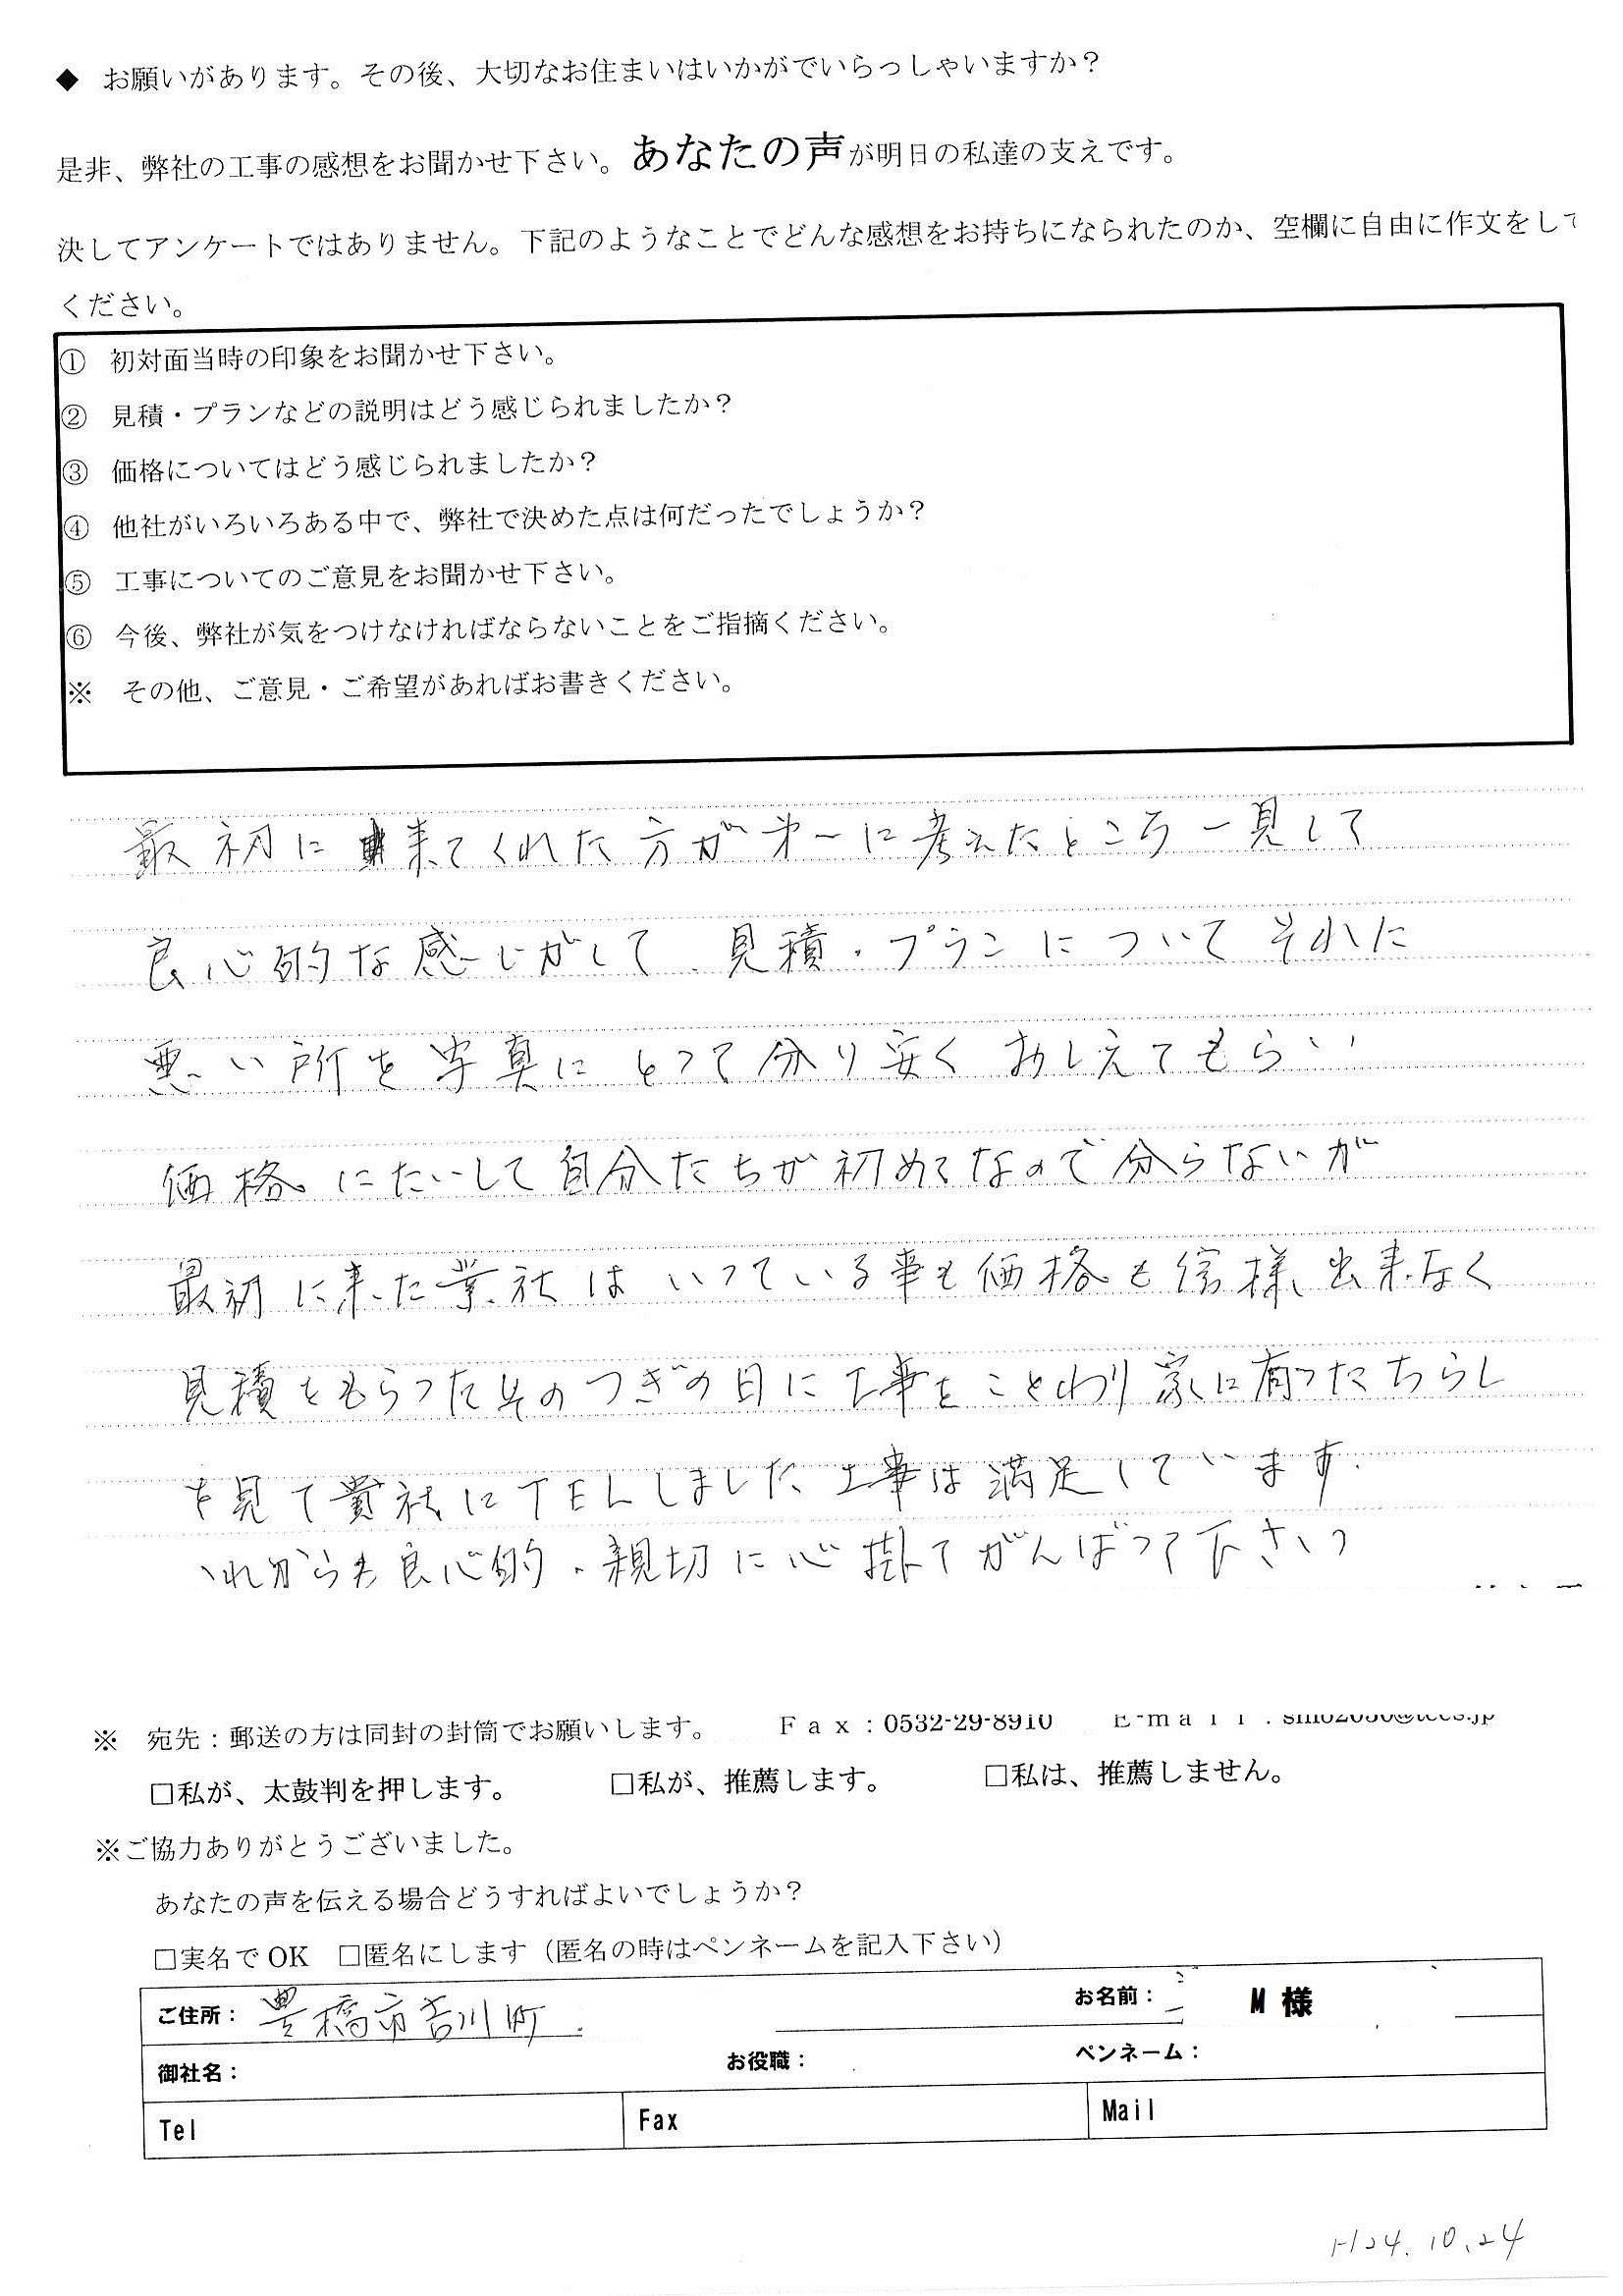 ◆ お願いがあります。その後、大切なお住まいはいかがでいらっしゃいますか？
是非、弊社の工事の感想をお聞かせ下さい。あなたの声が明日の私達の支えです。
決してアンケートではありません。下記のようなことでどんな感想をお持ちになられたのか、空欄に自由に作文をして
ください。
① 初対面当時の印象をお聞かせ下さい。
② 見積・プランなどの説明はどう感じられましたか？
③ 価格についてはどう感じられましたか？
④ 他社がいろいろある中で、弊社で決めた点は何だったでしょうか？
⑤ 工事についてのご意見をお聞かせ下さい。
⑥ 今後、弊社が気をつけなければならないことをご指摘ください。
※ その他、ご意見・ご希望があればお書きください。
最初に来てくれた方が才一に考えたところ一見して
良心的な感じがして 見積・プランについて それに
悪い所を写真にとって分り安く おしえてもらい
価格にたいして自分たちが初めてなので分らないが
最初に来た業社は いっている事も価格も信様出来なく
見積をもらったそのつぎの日に工事をことわり家に有ったちらし
を見て貴社にTELしました 工事は満足しています.
これからも良心的・親切に心掛てがんばって下さい
※ 宛先：郵送の方は同封の封筒でお願いします。 Ｆａｘ：0532-29-8910 E-mail：
□私が、太鼓判を押します。 □私が、推薦します。 □私は、推薦しません。
※ご協力ありがとうございました。
あなたの声を伝える場合どうすればよいでしょうか？
□実名で OK □匿名にします（匿名の時はペンネームを記入下さい）
ご住所： 豊橋市吉川町 お名前： M 様
御社名： お役職： ペンネーム：
Tel Fax Mail
H24.10.24